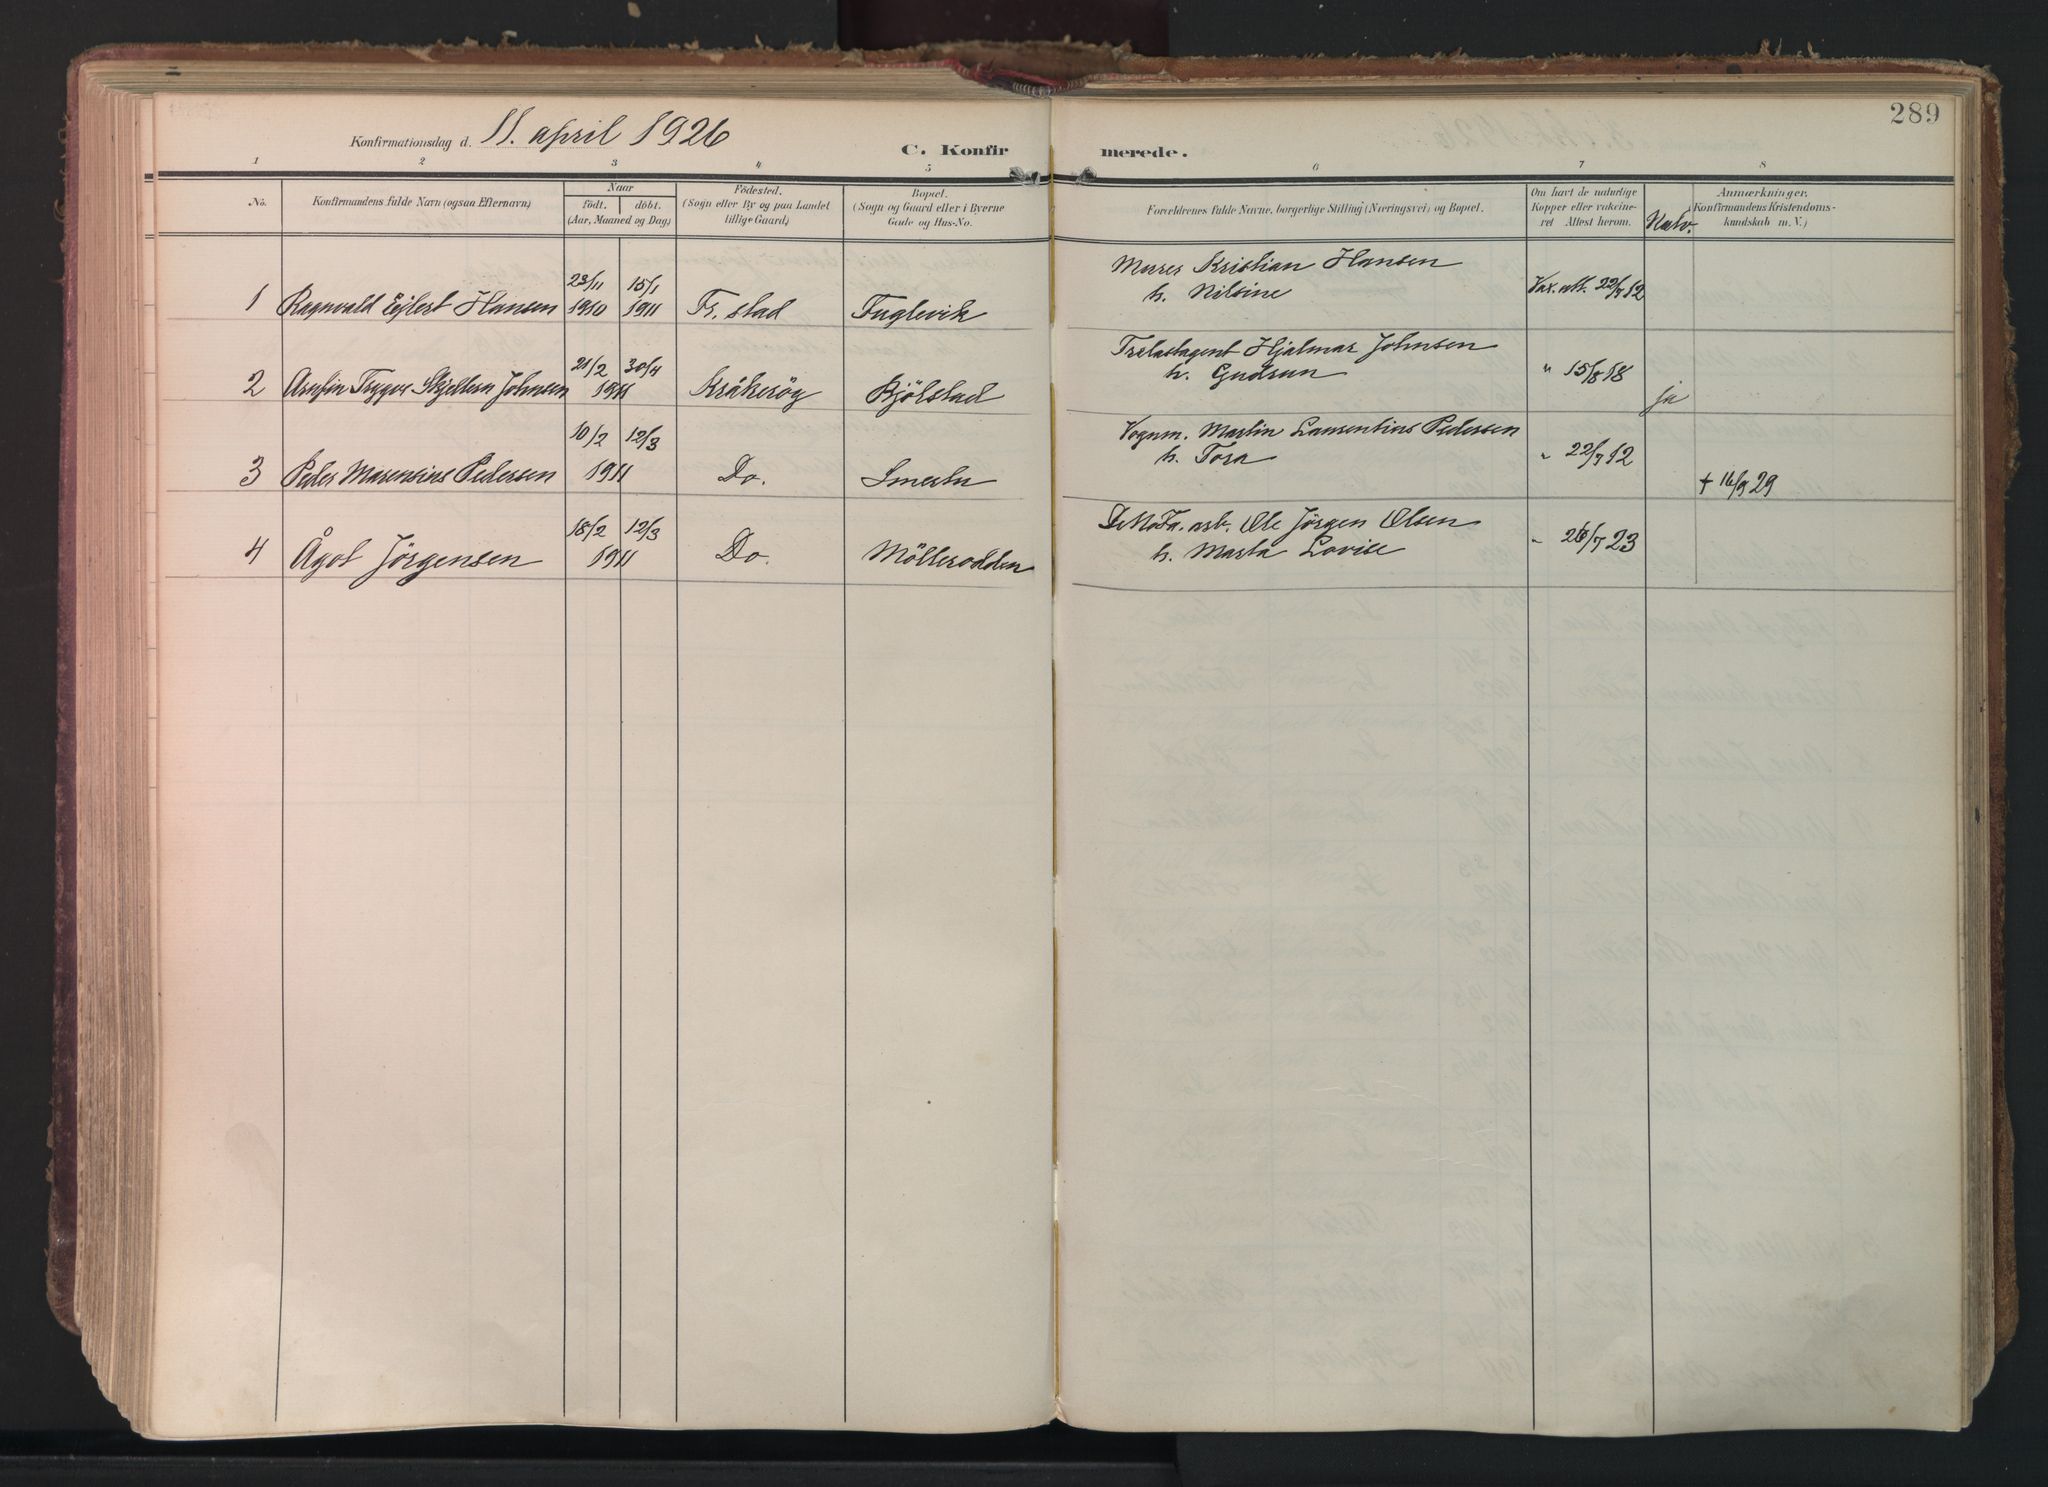 289
Konfirmationsdag d. 11. april 1926
C. Konfirmerede.
1 2 3 4 5 6 7 8
No.
Konfirmandens fulde Navn (ogsaa Efternavn)
Naar
födt. döbt.
(Aar, Maaned og Dag)
Födested.
(Sogn eller By og paa Landet
tillige Gaard)
Bopæl.
(Sogn og Gaard eller i Byerne
Gade og Hus-No.
Forældrenes fulde Navne, borgerlige Stilling (Næringsvei) og Bopæl.
Om havt de naturlige
Kopper eller vakcine-
ret Attest herom.
Natv.
Anmærkninger.
(Konfirmandens Kristendoms-
kundskab m. V.)
23/11 15/1
1 Ragnvald Ejlert Hansen 1910 1911 Fr.stad Fuglevik
Murer Kristian Hansen
h. Nilsine
Vax. att. 22/7 12
21/2 30/4
2 Arnfin Trygve Skjelbern Johnsen 1911 Kråkeröy Bjölstad
Trelastagent Hjalmar Johnsen
h. Gudrun
" 15/8 18
ja
10/2 12/3
3 Peder Marensius Pedersen 1911 Do. Smertu
Vognm. Martin Laurentius Pedersen
h. Tora
" 22/7 12
+ 16/9 29
18/2 12/3
4 Ågot Jörgensen 1911 Do. Möllerodden
arb. Ole Jörgen Olsen
h. Marta Lovise
" 26/7 23